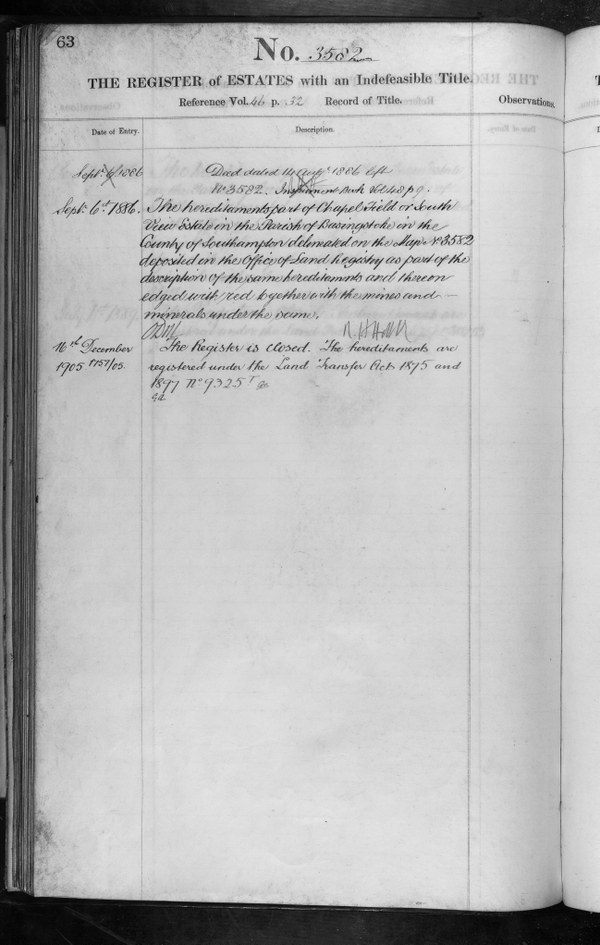 63
No. 3582
THE REGISTER of ESTATES with an Indefeasible Title.
Reference Vol. 46 p. 32 Record of Title.
Observations.
Date of Entry.
Description.
Sept. 6th 1886
Deed dated 14 Augt. 1886 left
No 3582. Instrument Book Vol 48 p 9.
Sept. 6th 1886.
The hereditaments part of Chapel Field or South
View Estate in the Parish of Basingstoke in the
County of Southampton delineated on the Map No. 3582
deposited in the Office of Land Registry as part of the
description of the same hereditaments and thereon
edged with red together with the mines and
minerals under the same.
16th December
1905 1157/05.
The Register is closed. The hereditaments are
registered under the Land Transfer Acts 1875 and
1897 No 9325